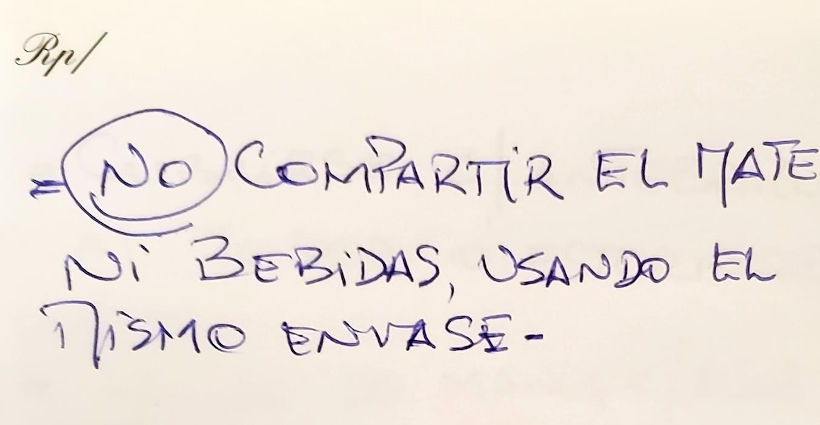 Rp/
= NO COMPARTIR EL MATE
NI BEBIDAS, USANDO EL
MISMO ENVASE-